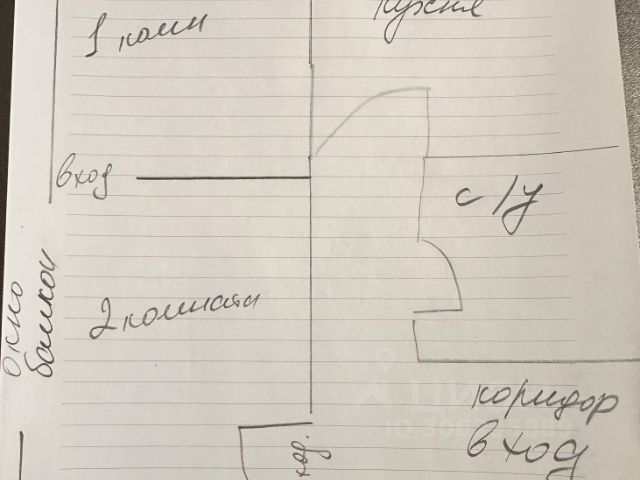 1 комн
кухня
вход
с/у
2 комната
окно
балкон
коридор
вход